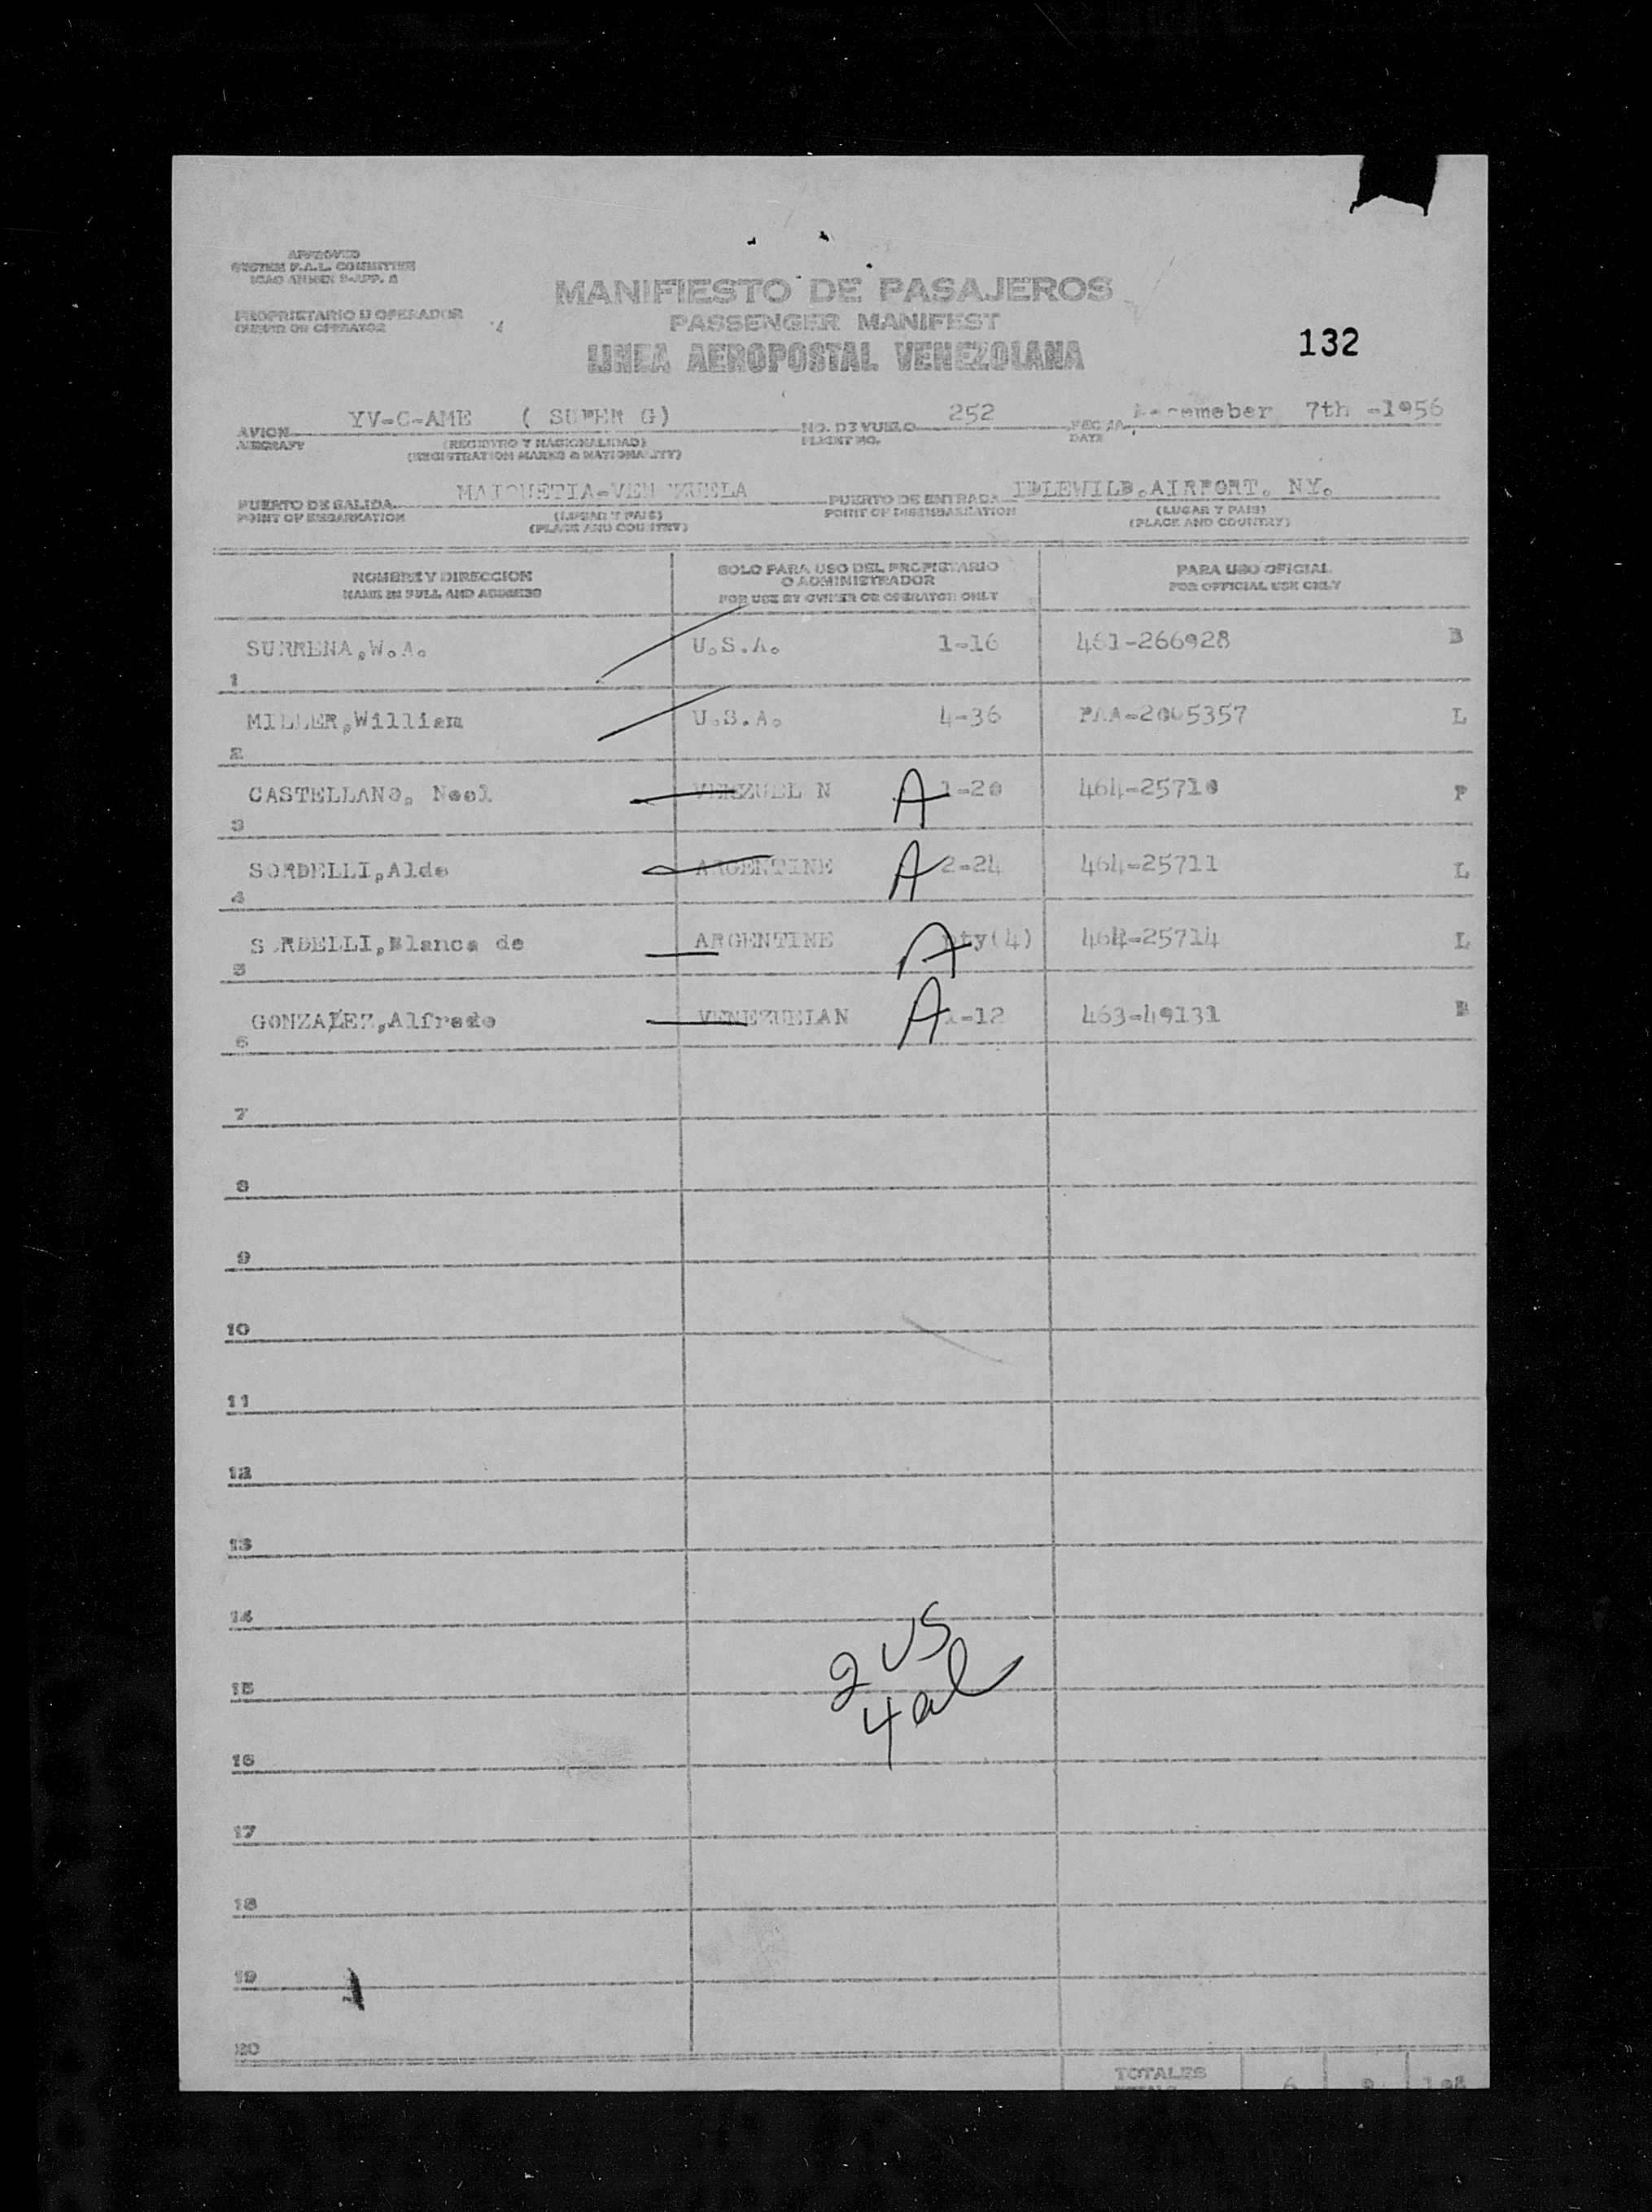 APPROVED
SYSTEM F.A.L. COMMITTEE
ICAO ANNEX 9-APP. 2
MANIFIESTO DE PASAJEROS
PROPRIETARIO U OPERADOR
OWNER OR OPERATOR
PASSENGER MANIFEST
132
LINEA AEROPOSTAL VENEZOLANA
AVION YV-C-AME ( SUPER G) NO. DE VUELO 252 FECHA Decemeber 7th -1956
AIRCRAFT (REGISTRO Y NACIONALIDAD) FLIGHT NO. DATE
(REGISTRATION MARKS & NATIONALITY)
PUERTO DE SALIDA MAIQUETIA-VENEZUELA PUERTO DE ENTRADA IDLEWILD.AIRPORT. NY.
POINT OF EMBARKATION (LUGAR Y PAIS) POINT OF DISEMBARKATION (LUGAR Y PAIS)
(PLACE AND COUNTRY) (PLACE AND COUNTRY)
NOMBRE Y DIRECCION SOLO PARA USO DEL PROPIETARIO O ADMINISTRADOR PARA USO OFICIAL
NAME IN FULL AND ADDRESS FOR USE BY OWNER OR OPERATOR ONLY FOR OFFICIAL USE ONLY
1 SURRENA,W.A. U.S.A. 1-16 461-266928 B
2 MILLER,William U.S.A. 4-36 PAA-2005357 L
3 CASTELLANO, Noel VENEZUEL N A 1-20 464-25710 P
4 SORDELLI,Aldo ARGENTINE A 2-24 464-25711 L
5 S RDELLI,Blanca de ARGENTINE A pty(4) 464-25714 L
6 GONZALEZ,Alfredo VENEZUELAN A 1-12 463-49131 B
7
8
9
10
11
12
13
14
2 US
15
4 al
16
17
18
19
20
TOTALES 6